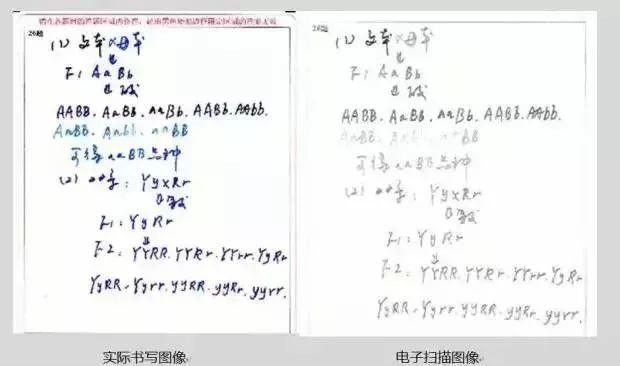 请在各题目的答题区域内作答，超出黑色矩形边框限定区域的答案无效
26题
(1) 父本 × 母本
F1 AaBb
AABB. AaBb. aaBb. AABb. AAbb.
AaBB. Aabb. aaBB
可得 aaBB 品种
(2) : Yy×Rr
F1: YyRr
F2: YYRR. YYRr. YYrr. YyRr
YyRR. Yyrr. yyRR. yyRr. yyrr.
实际书写图像
26题
(1) 父本 × 母本
F1 AaBb
AABB. AaBb. aaBb. AABb. AAbb.
AaBB. Aabb. aaBB
可得 aaBB 品种
(2) : Yy×Rr
F1: YyRr
F2: YYRR. YYRr. YYrr. YyRr
YyRR. Yyrr. yyRR. yyRr. yyrr.
电子扫描图像